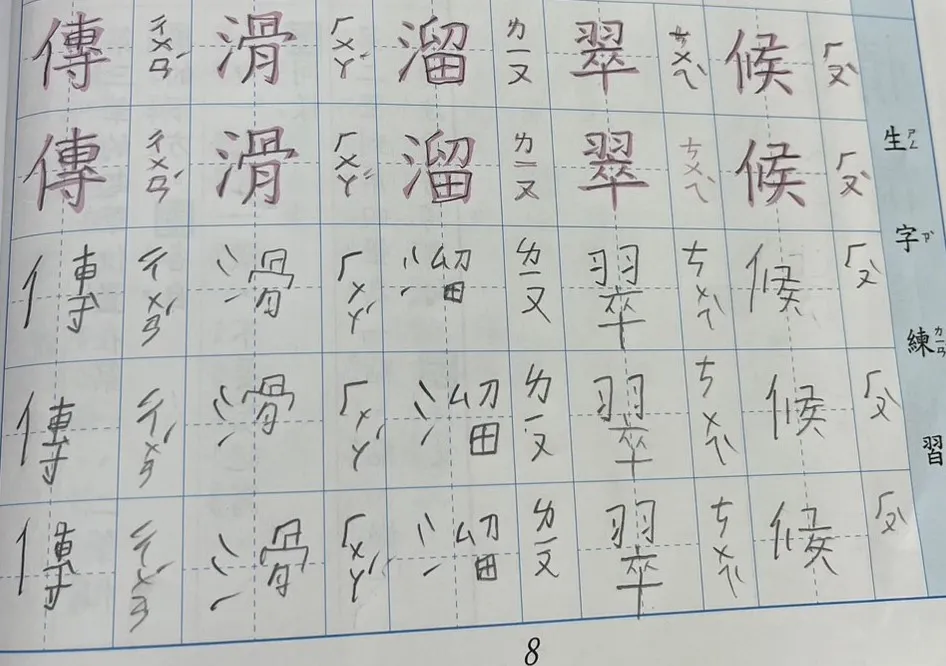 生ㄕㄥ字ㄗˋ練ㄌㄧㄢˋ習
候 ㄏㄡˋ
候 ㄏㄡˋ
候 ㄏㄡˋ
候 ㄏㄡˋ
候 ㄏㄡˋ
翠 ㄘㄨㄟˋ
翠 ㄘㄨㄟˋ
翠 ㄘㄨㄟˋ
翠 ㄘㄨㄟˋ
翠 ㄘㄨㄟˋ
溜 ㄌㄧㄡ
溜 ㄌㄧㄡ
溜 ㄌㄧㄡ
溜 ㄌㄧㄡ
溜 ㄌㄧㄡ
滑 ㄏㄨㄚˊ
滑 ㄏㄨㄚˊ
滑 ㄏㄨㄚˊ
滑 ㄏㄨㄚˊ
滑 ㄏㄨㄚˊ
傳 ㄔㄨㄢˊ
傳 ㄔㄨㄢˊ
傳 ㄔㄨㄢˊ
傳 ㄔㄨㄢˊ
傳 ㄔㄨㄢˊ
8